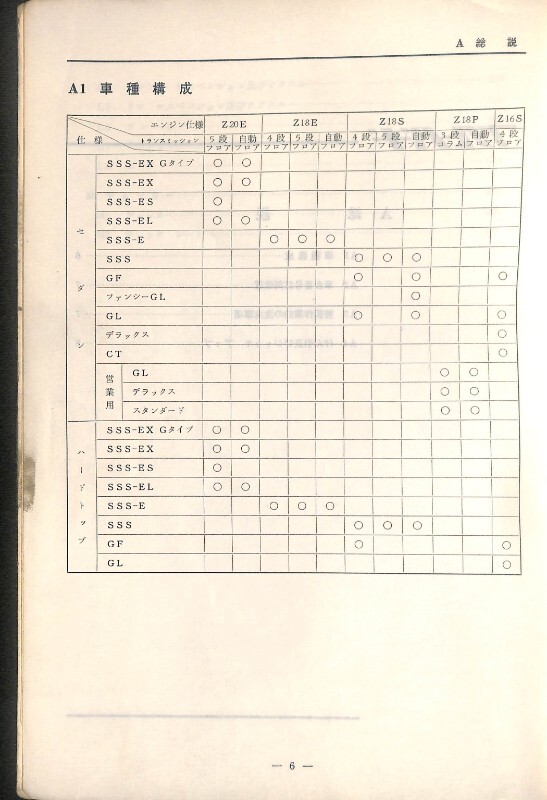 A 総 説
A1 車種構成
エンジン仕様 Z20E Z18E Z18S Z18P Z16S
仕様 トランスミッション 5段フロア 自動フロア 4段フロア 5段フロア 自動フロア 4段フロア 5段フロア 自動フロア 3段コラム 自動フロア 4段フロア
セダン
SSS-EX Gタイプ ○ ○
SSS-EX ○ ○
SSS-ES ○
SSS-EL ○ ○
SSS-E ○ ○ ○
SSS ○ ○ ○
GF ○ ○ ○
ファンシーGL ○
GL ○ ○ ○
デラックス ○
CT ○
営業用
GL ○ ○
デラックス ○ ○
スタンダード ○ ○
ハードトップ
SSS-EX Gタイプ ○ ○
SSS-EX ○ ○
SSS-ES ○
SSS-EL ○ ○
SSS-E ○ ○ ○
SSS ○ ○ ○
GF ○ ○
GL ○
— 6 —